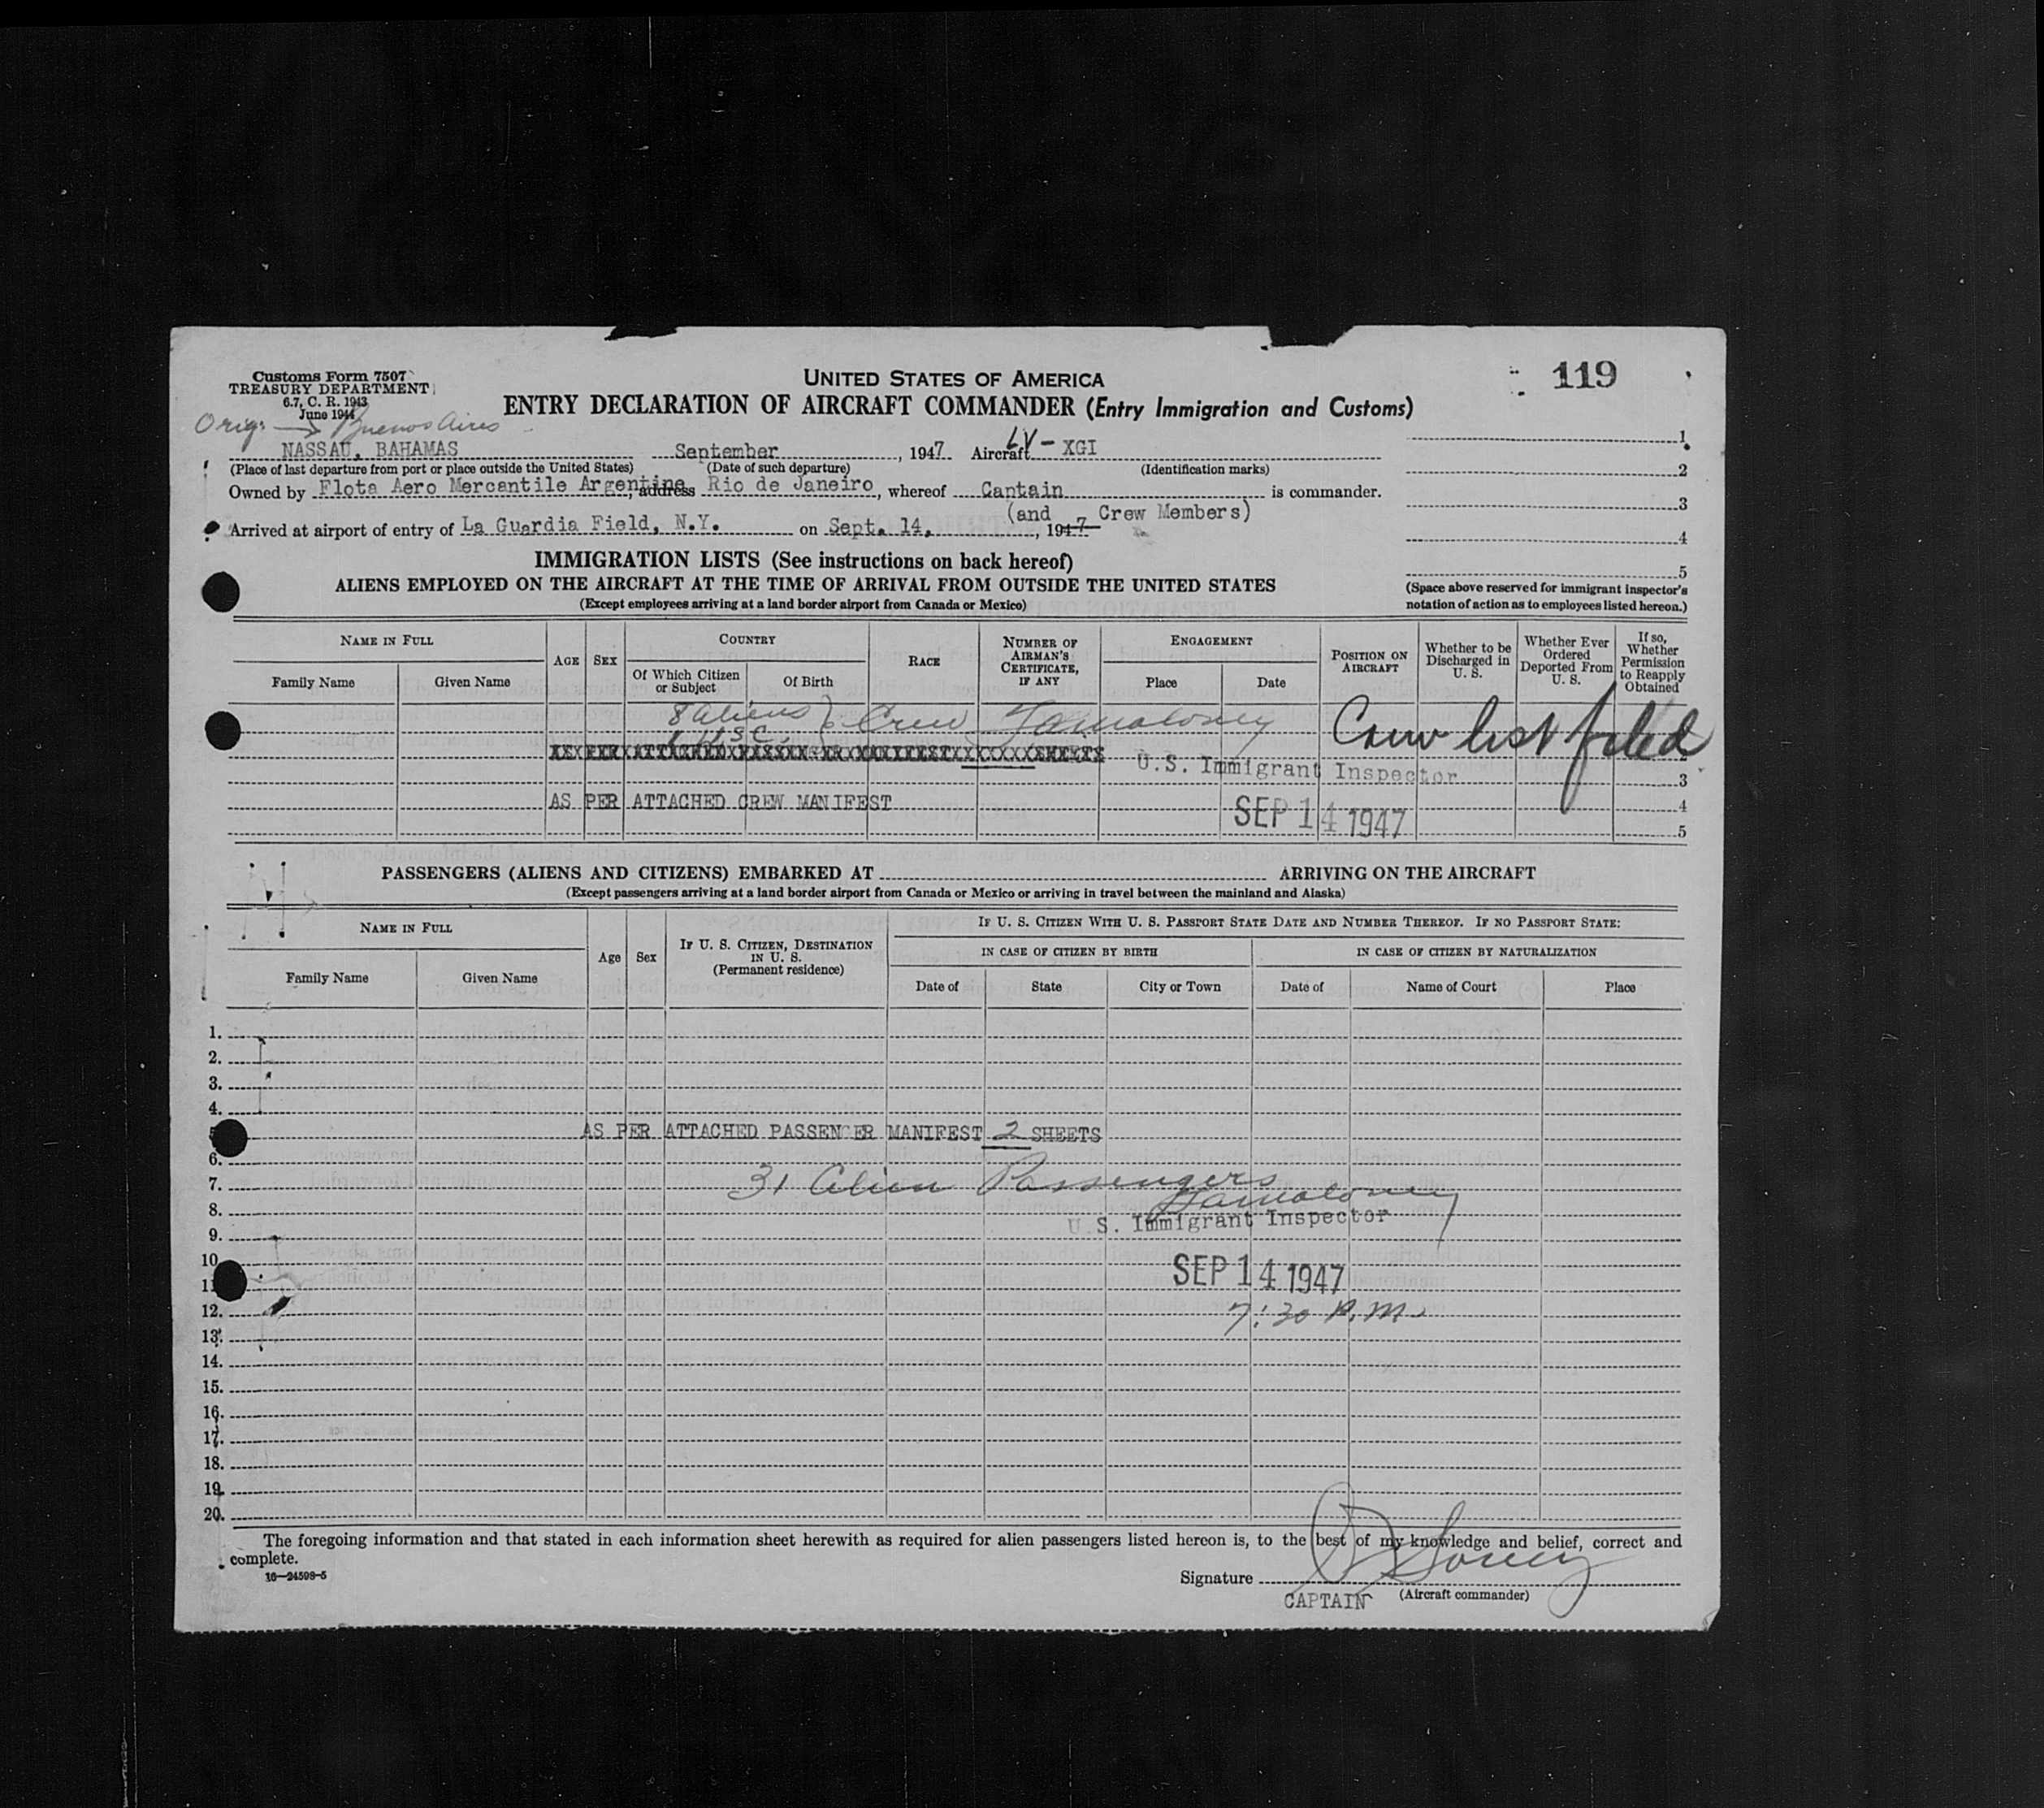 Customs Form 7507
TREASURY DEPARTMENT
6.7, C. R. 1943
June 1944
UNITED STATES OF AMERICA
119
ENTRY DECLARATION OF AIRCRAFT COMMANDER (Entry Immigration and Customs)
Orig: → Buenos Aires
NASSAU, BAHAMAS September , 1947 Aircraft LV- XGI
(Place of last departure from port or place outside the United States) (Date of such departure) (Identification marks)
Owned by Flota Aero Mercantile Argentina, address Rio de Janeiro, whereof Captain is commander.
(and Crew Members)
Arrived at airport of entry of La Guardia Field, N.Y. on Sept. 14, , 1947
1
2
3
4
5
(Space above reserved for immigrant inspector's
notation of action as to employees listed hereon.)
IMMIGRATION LISTS (See instructions on back hereof)
ALIENS EMPLOYED ON THE AIRCRAFT AT THE TIME OF ARRIVAL FROM OUTSIDE THE UNITED STATES
(Except employees arriving at a land border airport from Canada or Mexico)
NAME IN FULL
Family Name
Given Name
AGE
SEX
COUNTRY
Of Which Citizen
or Subject
Of Birth
RACE
NUMBER OF
AIRMAN'S
CERTIFICATE,
IF ANY
ENGAGEMENT
Place
Date
POSITION ON
AIRCRAFT
Whether to be
Discharged in
U. S.
Whether Ever
Ordered
Deported From
U. S.
If so,
Whether
Permission
to Reapply
Obtained
8 aliens } Crew
1 USC.
Crew list filed
U.S. Immigrant Inspector
3
AS PER ATTACHED CREW MANIFEST
SEP 14 1947
4
5
PASSENGERS (ALIENS AND CITIZENS) EMBARKED AT ARRIVING ON THE AIRCRAFT
(Except passengers arriving at a land border airport from Canada or Mexico or arriving in travel between the mainland and Alaska)
NAME IN FULL
Family Name
Given Name
Age
Sex
IF U. S. CITIZEN, DESTINATION
IN U. S.
(Permanent residence)
IF U. S. CITIZEN WITH U. S. PASSPORT STATE DATE AND NUMBER THEREOF. IF NO PASSPORT STATE:
IN CASE OF CITIZEN BY BIRTH
IN CASE OF CITIZEN BY NATURALIZATION
Date of
State
City or Town
Date of
Name of Court
Place
1.
2.
3.
4.
AS PER ATTACHED PASSENGER MANIFEST 2 SHEETS
6.
7. 31 Alien Passengers
8.
U.S. Immigrant Inspector
9.
10
SEP 14 1947
11
12. 7:30 P.M.
13.
14.
15.
16.
17.
18.
19.
20.
The foregoing information and that stated in each information sheet herewith as required for alien passengers listed hereon is, to the best of my knowledge and belief, correct and
complete.
16—24598-5
Signature
CAPTAIN (Aircraft commander)